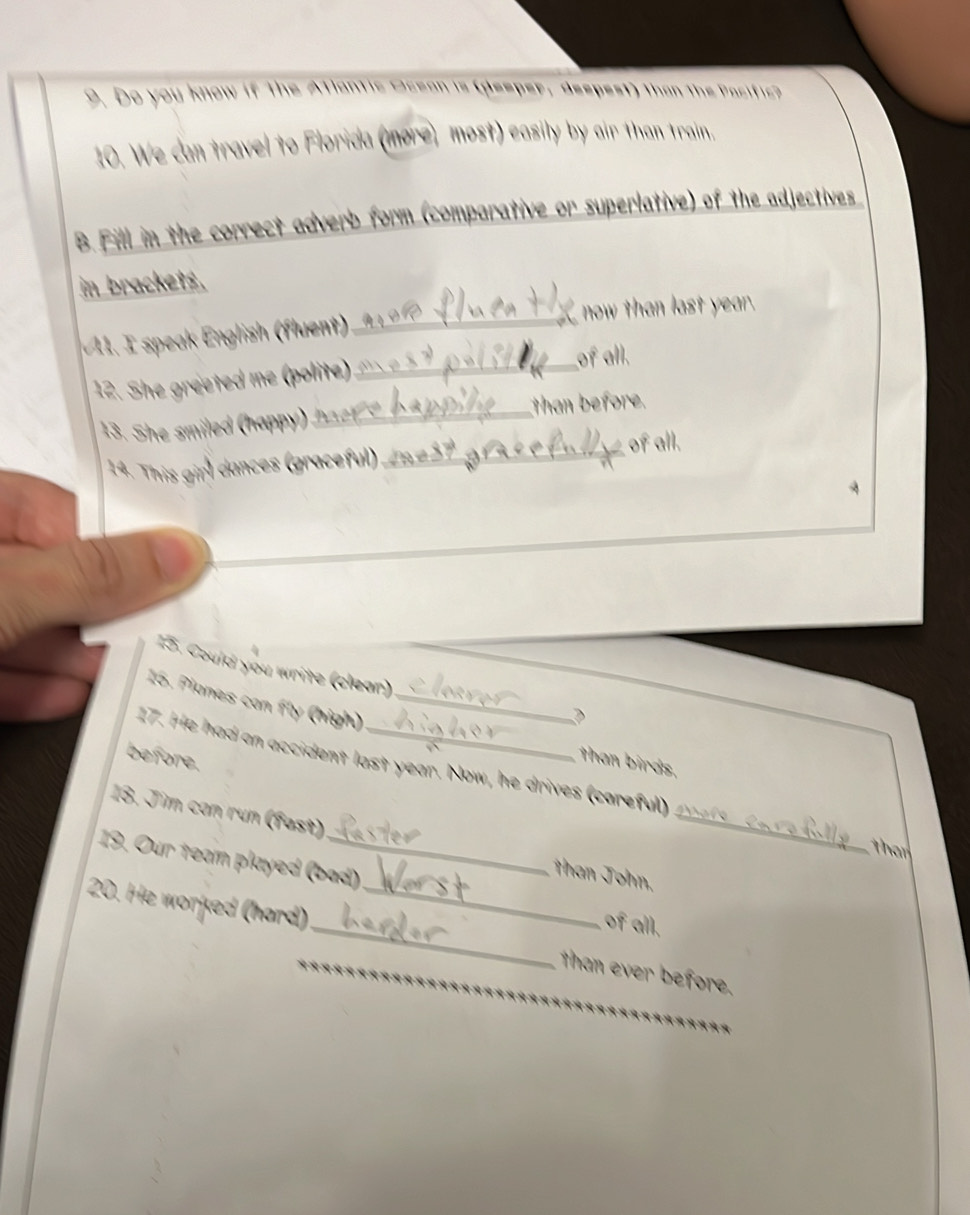 9. Do you know if the Atlantic Ocean is (deeper, deepest) than the Pacific?
10. We can travel to Florida (more, most) easily by air than train.
B. Fill in the correct adverb form (comparative or superlative) of the adjectives
in brackets.
11. I speak English (fluent) more fluently now than last year.
12. She greeted me (polite) most politly of all.
13. She smiled (happy) more happily than before.
14. This girl dances (graceful) most gracefully of all.
4
15. Could you write (clear) clearer ?
16. Planes can fly (high) higher than birds.
17. He had an accident last year. Now, he drives (careful) more carefully than
before.
18. Jim can run (fast) faster than John.
19. Our team played (bad) Worst of all.
20. He worked (hard) harder than ever before.
****************************************